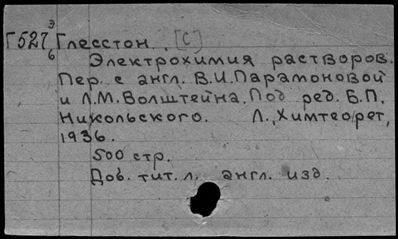 Э
Г527 Глесстон. [С]
б
Электрохимия растворов.
Пер. с англ. В.И.Парамоновой
и Л.М.Волштейна. Под ред. Б.П.
Никольского. Л., Химтеорет,
1936.
500 стр.
Доб. тит. л. англ. изд.